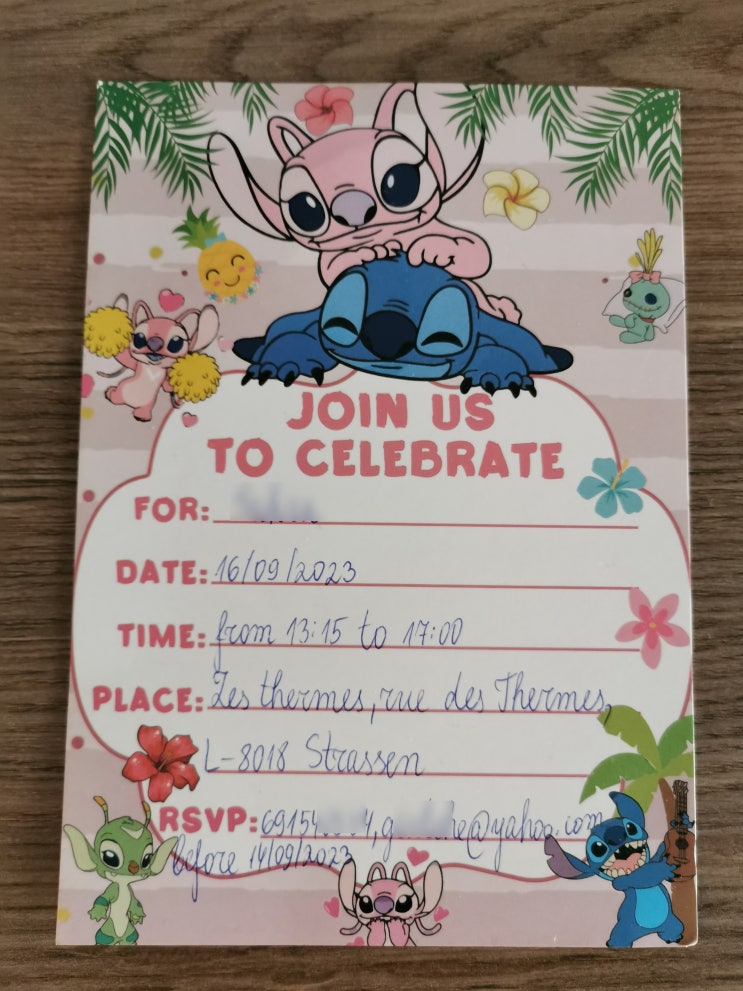 JOIN US
TO CELEBRATE
FOR:
DATE: 16/09/2023
TIME: from 13:15 to 17:00
PLACE: Les thermes, rue des Thermes,
L-8018 Strassen
RSVP: @yahoo.com
before 14/09/2023